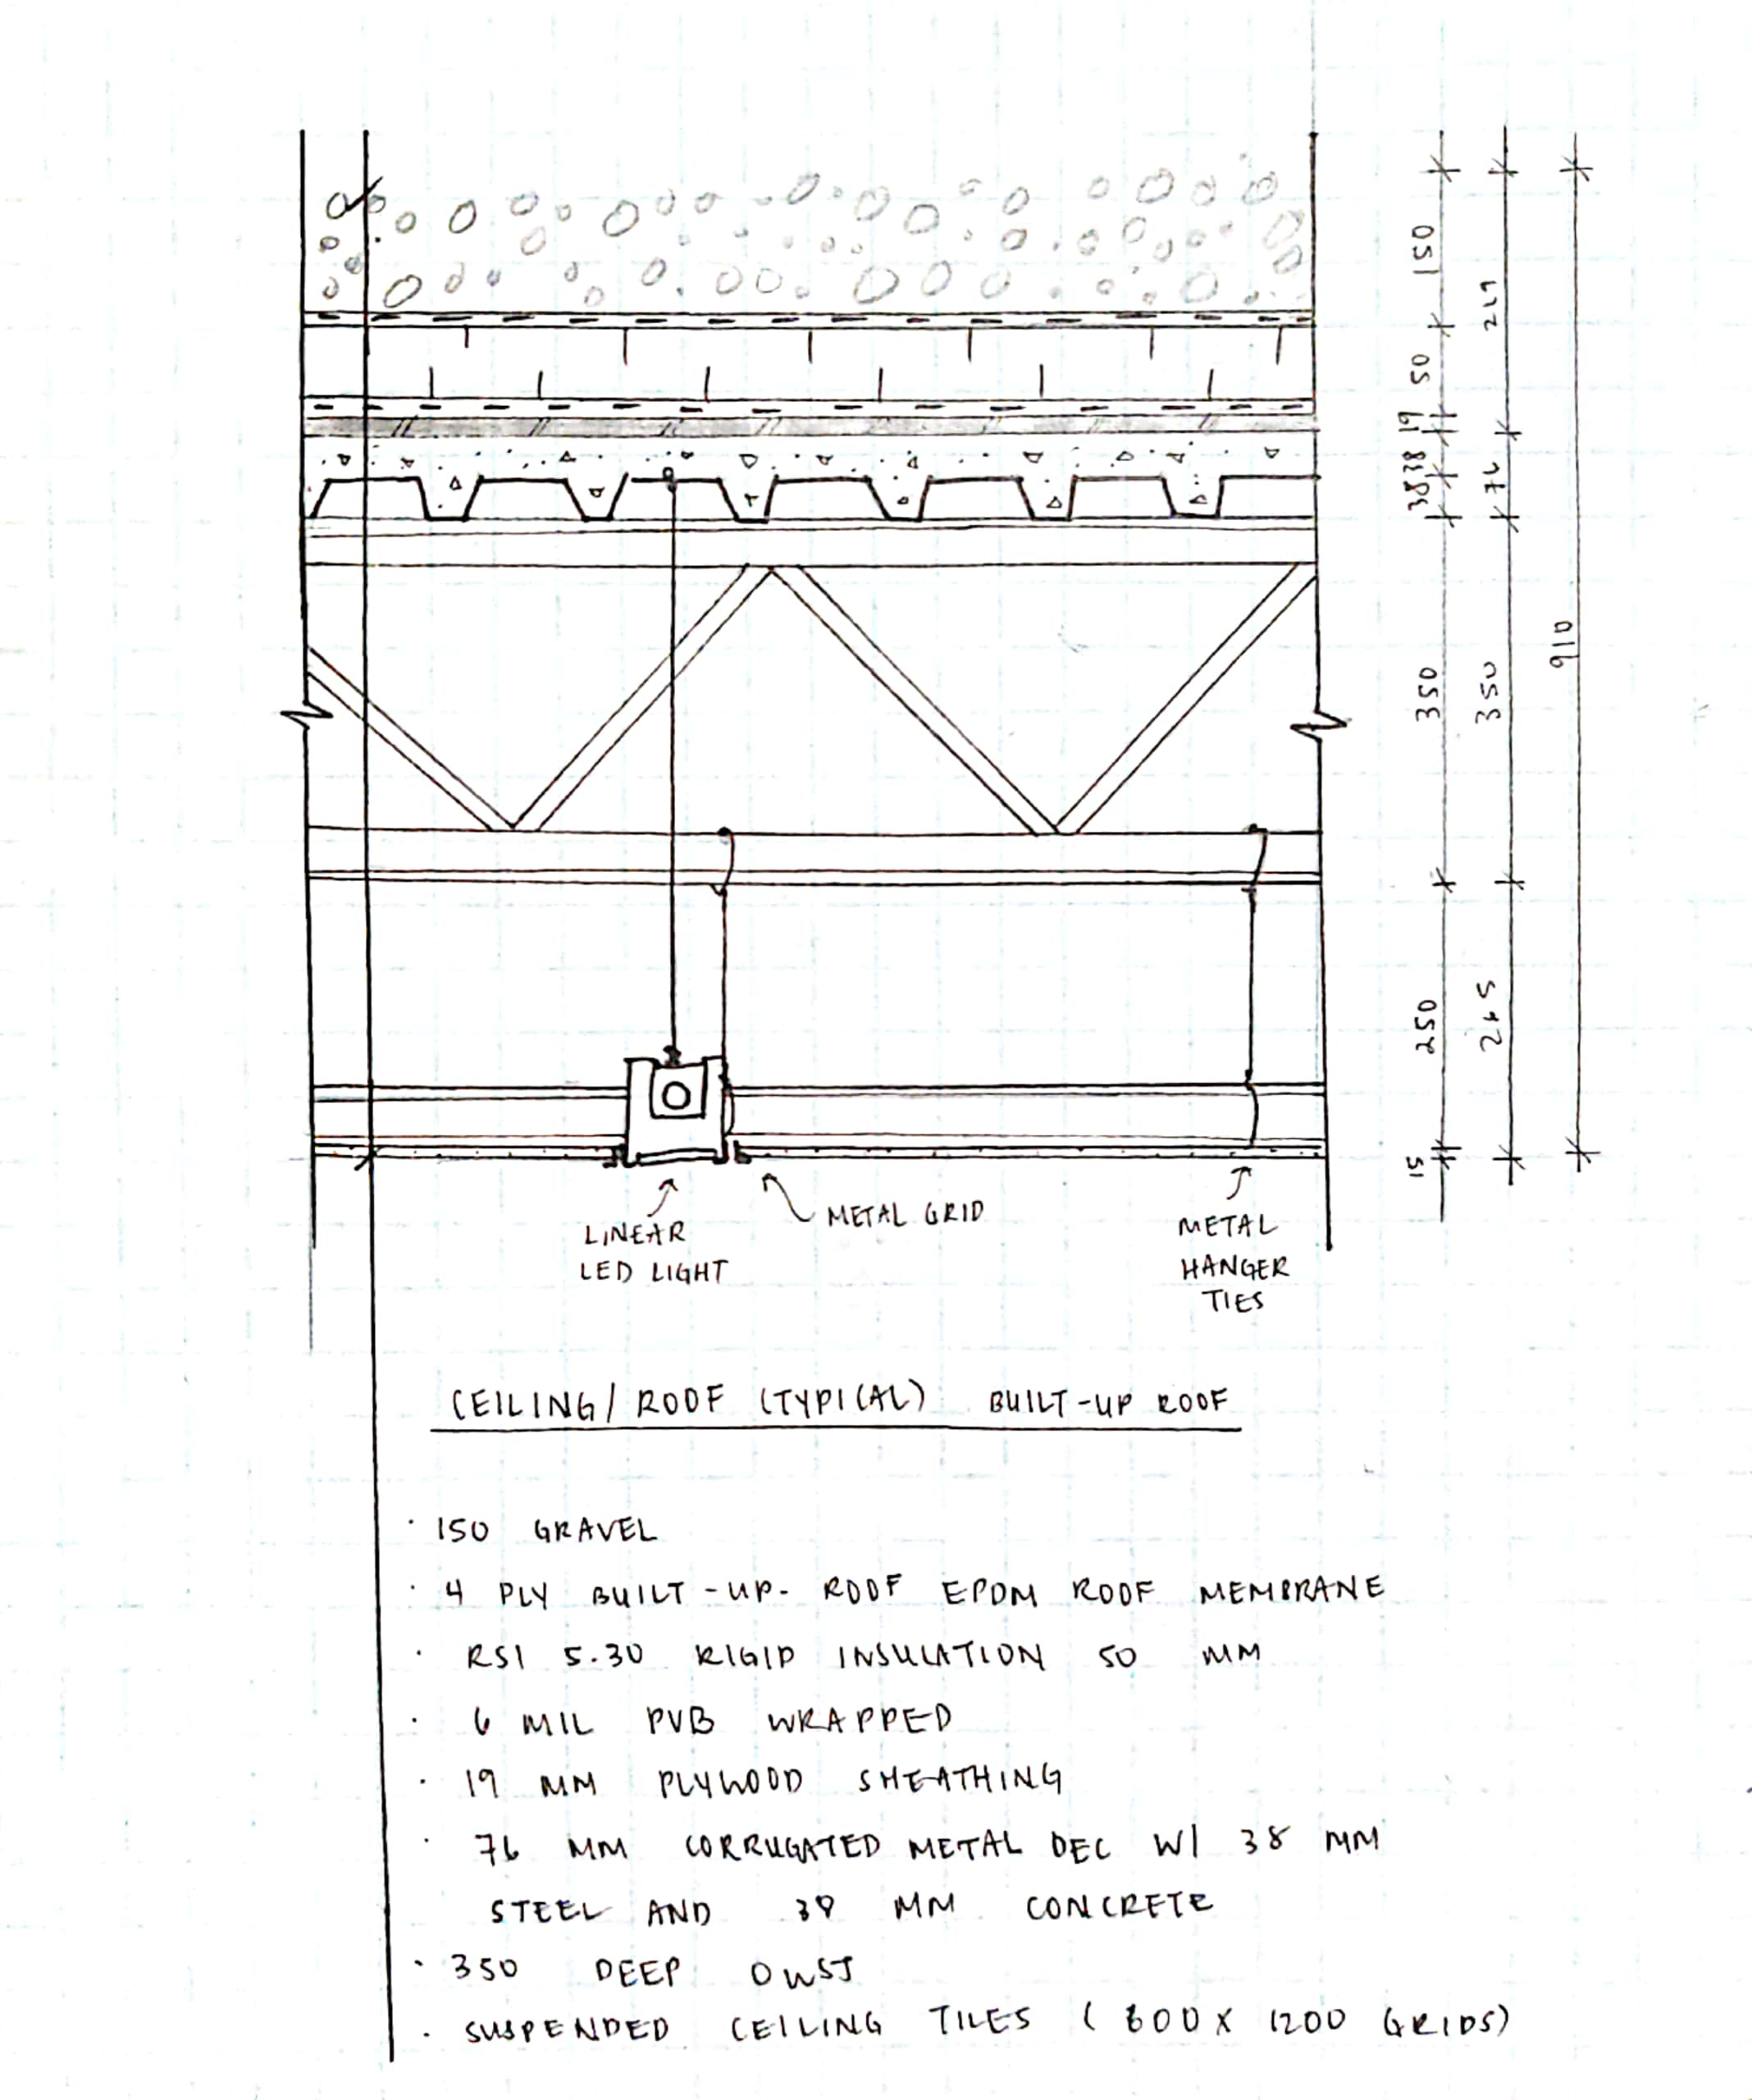 150
50
19
38
38
350
250
15
219
76
350
265
910
LINEAR
LED LIGHT
METAL GRID
METAL
HANGER
TIES
CEILING/ROOF (TYPICAL) BUILT-UP ROOF
· 150 GRAVEL
· 4 PLY BUILT-UP- ROOF EPDM ROOF MEMBRANE
· RSI 5.30 RIGID INSULATION 50 MM
· 6 MIL PVB WRAPPED
· 19 MM PLYWOOD SHEATHING
· 76 MM CORRUGATED METAL DEC W/ 38 MM
STEEL AND 38 MM CONCRETE
· 350 DEEP OWSJ
· SUSPENDED CEILING TILES (600 X 1200 GRIDS)